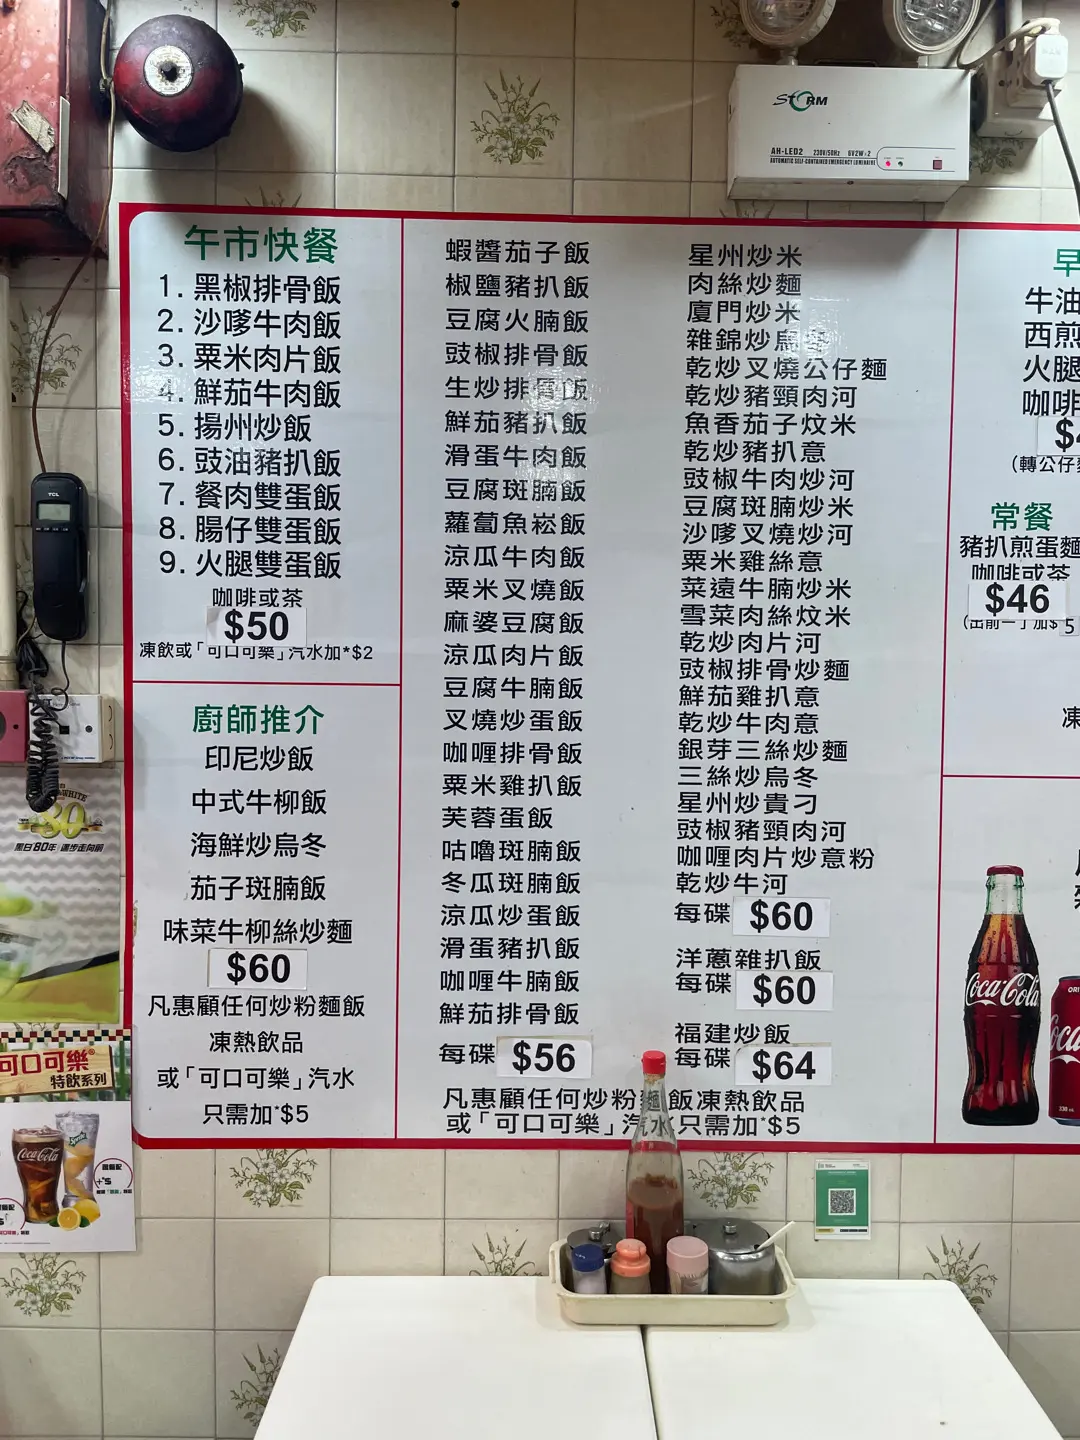 STORM
AH-LED2 230V/50Hz 6V2W×2
AUTOMATIC SELF-CONTAINED EMERGENCY LUMINAIRE
TCL
午市快餐
1. 黑椒排骨飯
2. 沙嗲牛肉飯
3. 粟米肉片飯
4. 鮮茄牛肉飯
5. 揚州炒飯
6. 豉油豬扒飯
7. 餐肉雙蛋飯
8. 腸仔雙蛋飯
9. 火腿雙蛋飯
咖啡或茶
$50
凍飲或「可口可樂」汽水加*$2
廚師推介
印尼炒飯
中式牛柳飯
海鮮炒烏冬
茄子斑腩飯
味菜牛柳絲炒麵
$60
凡惠顧任何炒粉麵飯
凍熱飲品
或「可口可樂」汽水
只需加*$5
蝦醬茄子飯
椒鹽豬扒飯
豆腐火腩飯
豉椒排骨飯
生炒排骨飯
鮮茄豬扒飯
滑蛋牛肉飯
豆腐斑腩飯
蘿蔔魚崧飯
涼瓜牛肉飯
粟米叉燒飯
麻婆豆腐飯
涼瓜肉片飯
豆腐牛腩飯
叉燒炒蛋飯
咖喱排骨飯
粟米雞扒飯
芙蓉蛋飯
咕嚕斑腩飯
冬瓜斑腩飯
涼瓜炒蛋飯
滑蛋豬扒飯
咖喱牛腩飯
鮮茄排骨飯
每碟 $56
星州炒米
肉絲炒麵
廈門炒米
雜錦炒烏冬
乾炒叉燒公仔麵
乾炒豬頸肉河
魚香茄子炆米
乾炒豬扒意
豉椒牛肉炒河
豆腐斑腩炒米
沙嗲叉燒炒河
粟米雞絲意
菜遠牛腩炒米
雪菜肉絲炆米
乾炒肉片河
豉椒排骨炒麵
鮮茄雞扒意
乾炒牛肉意
銀芽三絲炒麵
三絲炒烏冬
星州炒貴刁
豉椒豬頸肉河
咖喱肉片炒意粉
乾炒牛河
每碟 $60
洋蔥雜扒飯
每碟 $60
福建炒飯
每碟 $64
凡惠顧任何炒粉麵飯凍熱飲品
或「可口可樂」汽水只需加*$5
早
牛油
西煎
火腿
咖啡
(轉公仔
常餐
豬扒煎蛋麵
咖啡或茶
$46
凍
Coca-Cola
80
黑白80年 進步走向前
可口可樂
特飲系列
Coca-Cola
Sprite